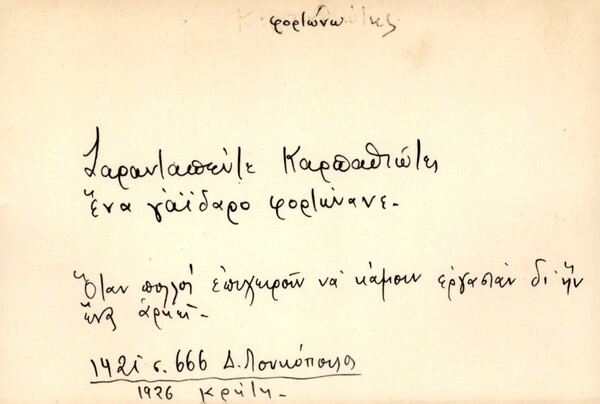 φορτώνω
Σαρανταπέντε Καρπαθιώτες
ἕνα γάϊδαρο φορτώνανε.
Ὅταν πολλοί ἐπιχειροῦν νά κάμουν ἐργασίαν δι' ἥν
ἕνας ἀρκεῖ.
1421 σ. 666 Δ. Λουκόπουλος
1926 Κρήτη.